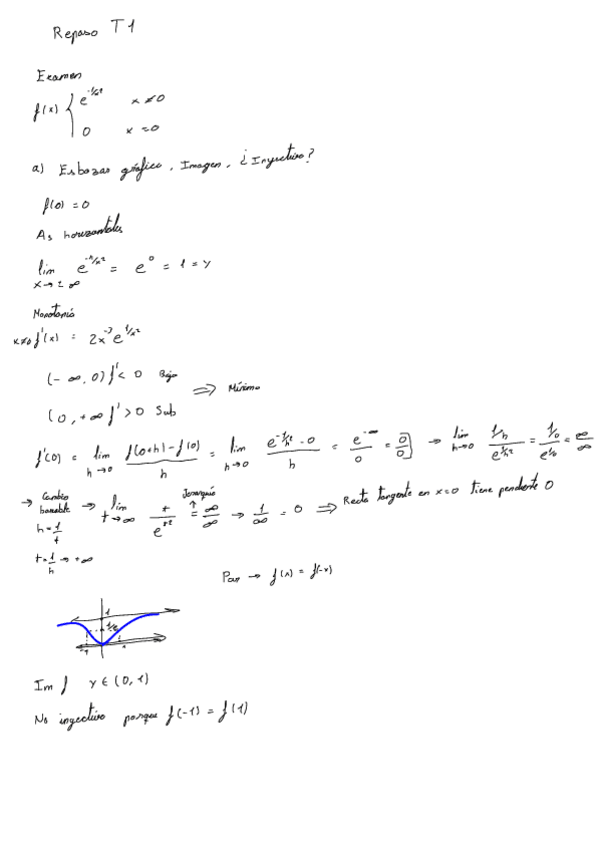 Repaso T1
Examen
f(x) { e^{-1/x²} x ≠ 0
0 x = 0
a) Esbozar gráfica, Imagen, ¿Inyectiva?
f(0) = 0
As horizontales
lim x→±∞ e^{-1/x²} = e^0 = 1 = y
Monotonía
x≠0 f'(x) = 2x^{-3} e^{1/x²}
(-∞, 0) f' < 0 Baja
⇒ Mínimo
(0, +∞ f' > 0 Sub
f'(0) = lim h→0 f(0+h) - f(0) / h = lim h→0 e^{-1/h²} - 0 / h = e^{-∞} / 0 = [0/0] → lim h→0 1/h / e^{1/h²} = 1/0 / e^{1/0} = ∞/∞
→ Cambio variable → lim t→∞ t / e^{t²} = ∞/∞ Jerarquía → 1/∞ = 0 ⇒ Recta tangente en x=0 tiene pendiente 0
h = 1/t
t = 1/h → +∞
Par → f(x) = f(-x)
1
1/e
-1 1
Im f y ∈ (0, 1)
No inyectiva porque f(-1) = f(1)